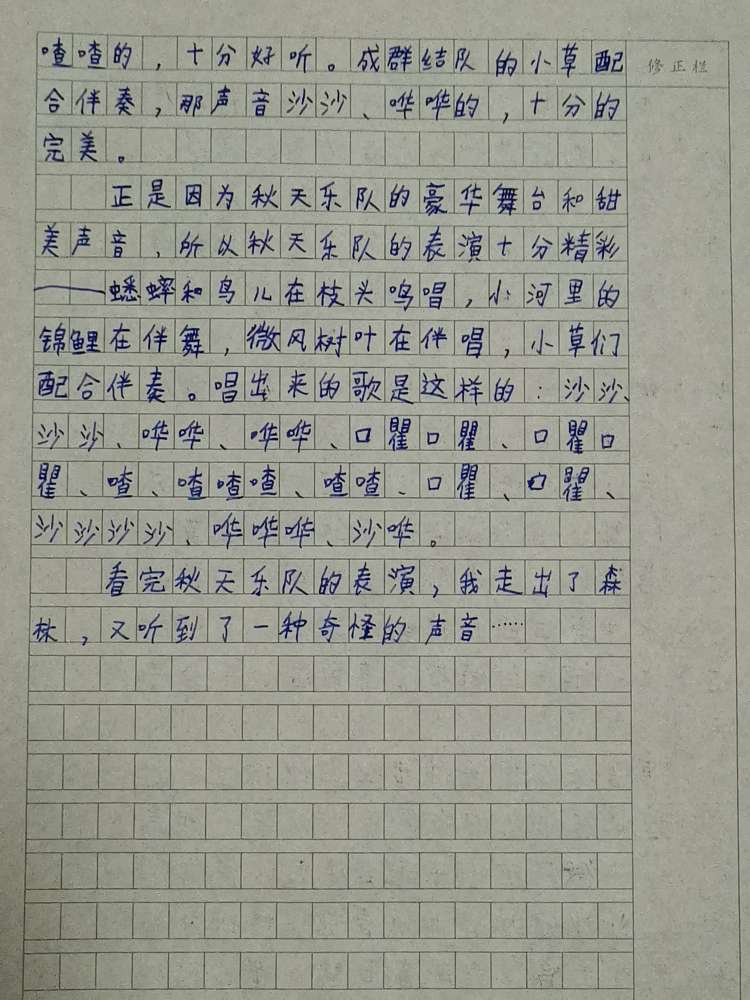 喳喳的，十分好听。成群结队的小草配
修正栏
合伴奏，那声音沙沙、哗哗的，十分的
完美。
正是因为秋天乐队的豪华舞台和甜
美声音，所以秋天乐队的表演十分精彩
——蟋蟀和鸟儿在枝头鸣唱，小河里的
锦鲤在伴舞，微风树叶在伴唱，小草们
配合伴奏。唱出来的歌是这样的：沙沙、
沙沙、哗哗、哗哗、口瞿口瞿、口瞿口
瞿、喳、喳喳喳、喳喳、口瞿、口瞿、
沙沙沙沙、哗哗哗、沙哗。
看完秋天乐队的表演，我走出了森
林，又听到了一种奇怪的声音……